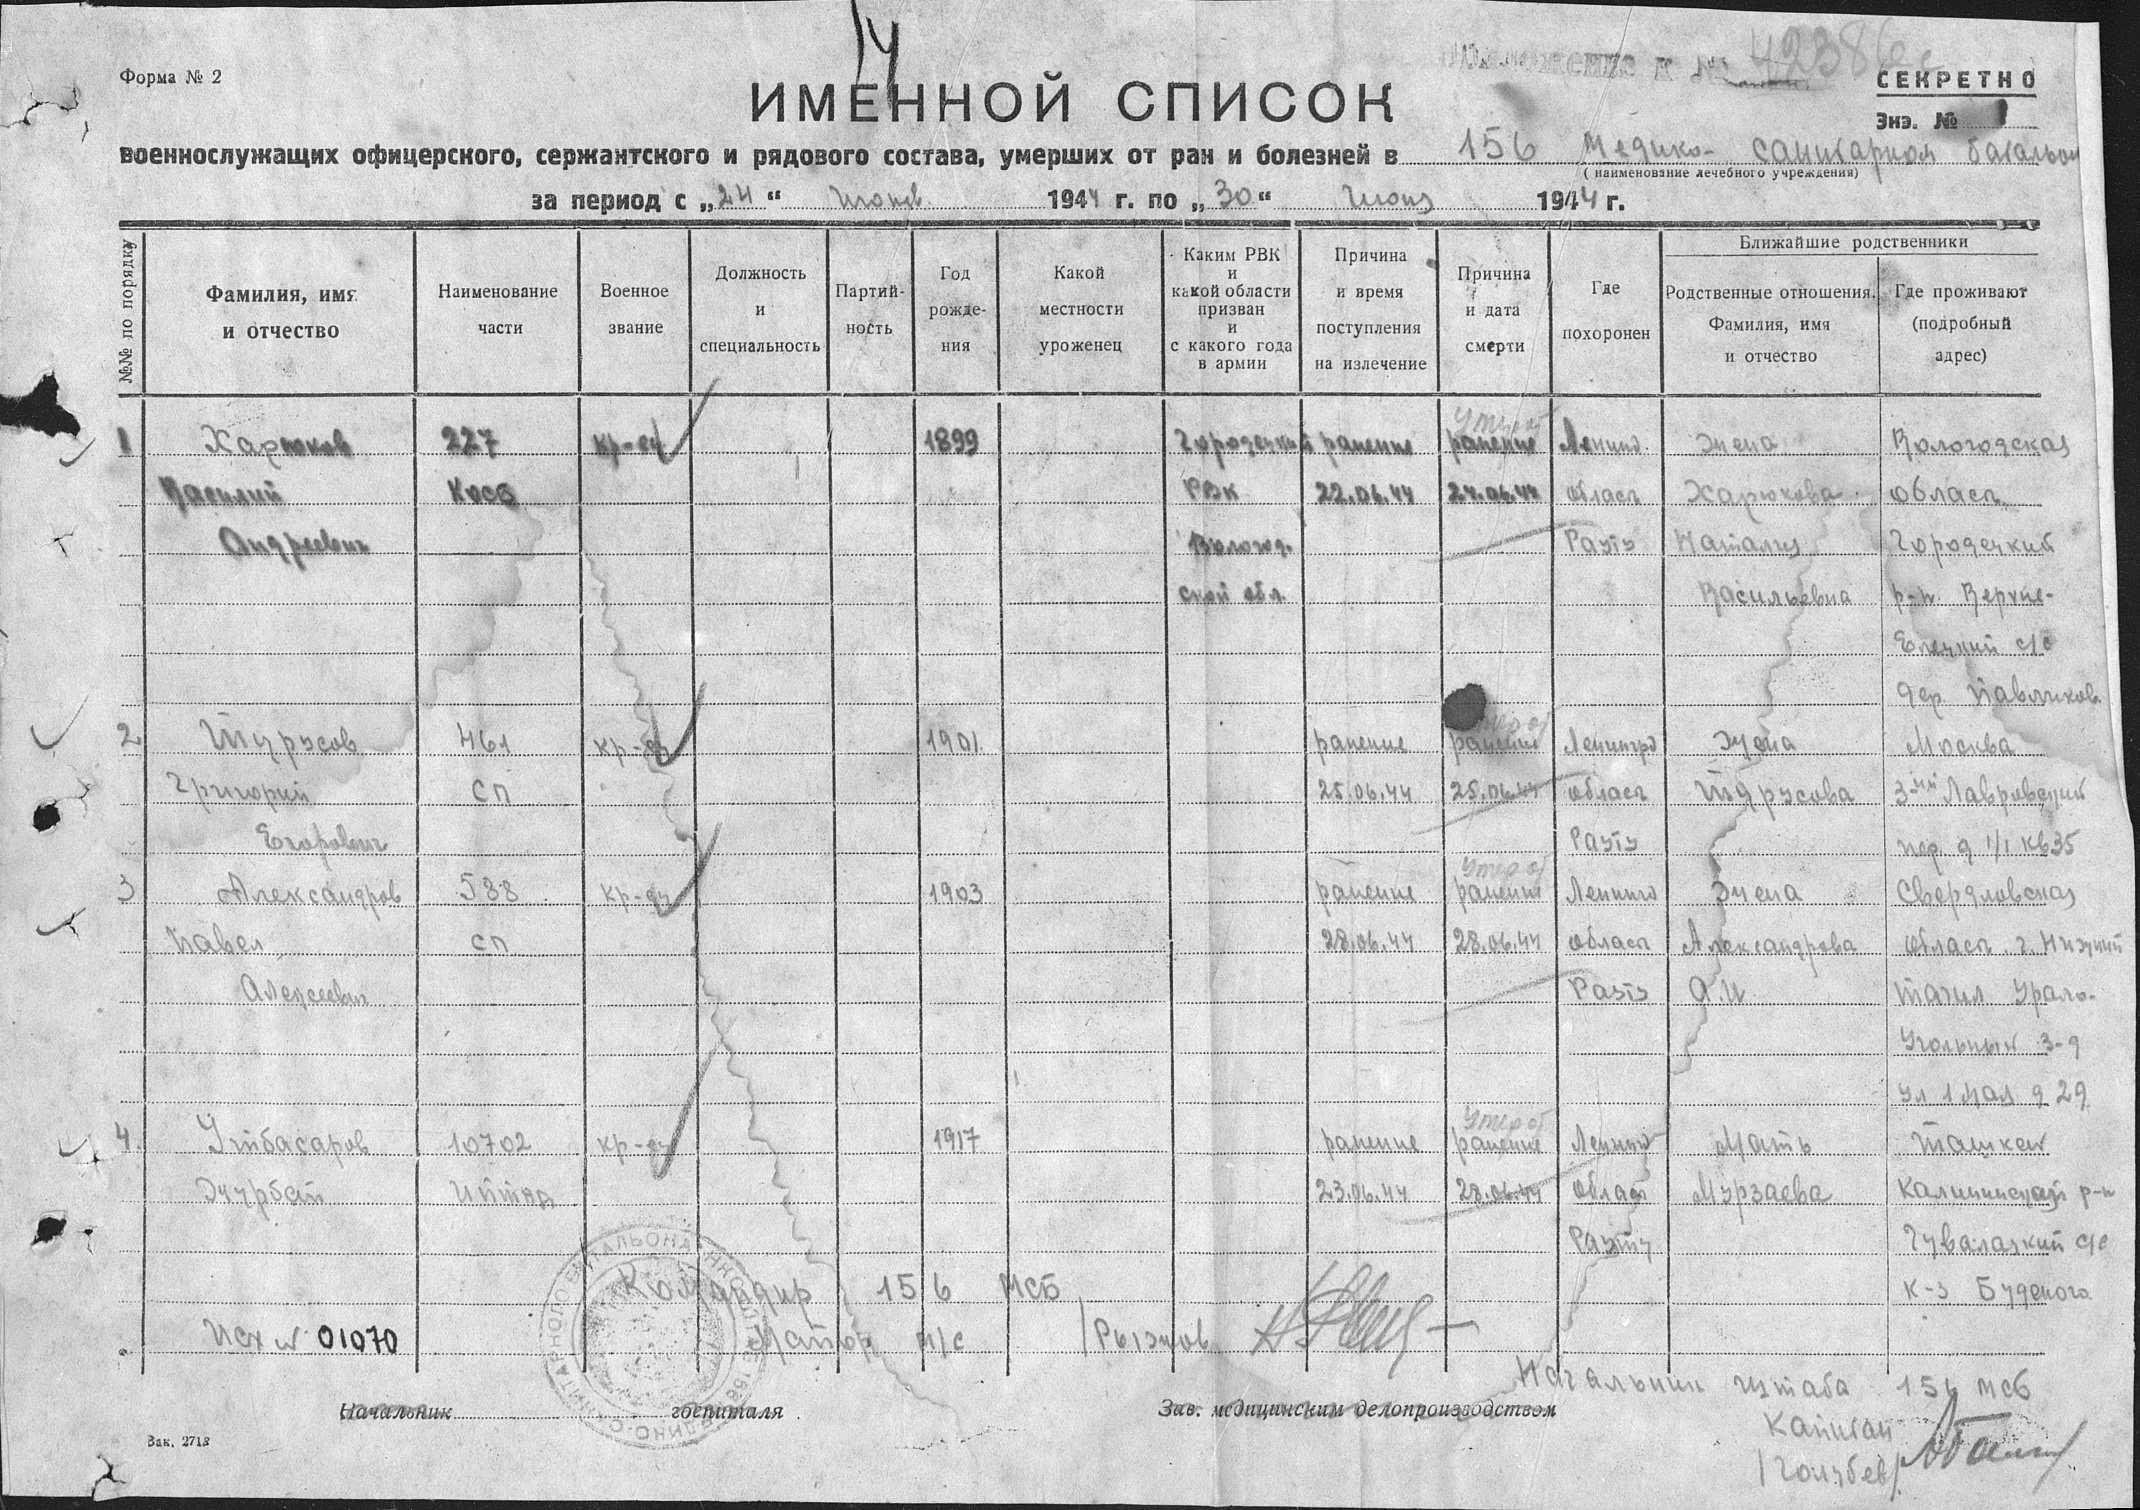 14
Форма № 2
42386с
СЕКРЕТНО
ИМЕННОЙ СПИСОК
Экз. № 1
военнослужащих офицерского, сержантского и рядового состава, умерших от ран и болезней в 156 Медико-санитарном батальон
(наименование лечебного учреждения)
за период с „24“ июня 1944 г. по „30“ июня 1944 г.
№№ по порядку
Фамилия, имя и отчество
Наименование части
Военное звание
Должность и специальность
Партийность
Год рождения
Какой местности уроженец
Каким РВК и какой области призван и с какого года в армии
Причина и время поступления на излечение
Причина и дата смерти
Где похоронен
Ближайшие родственники
Родственные отношения, Фамилия, имя и отчество
Где проживают (подробный адрес)
Умер от
1 Харюков 227 кр-ец 1899 Городецкий ранение ранение Ленинг. жена Вологодская
Василий КОСБ РВК 22.06.44 24.06.44 област Харюкова область
Андреевич Вологод- Раутз Наталия Городецкий
ской обл. Васильевна р-н. Верхне-
Енецкий с/с
дер. Павликов.
умер от
2 Турусов 461 кр-ец 1901. ранение ранение Ленингр жена Москва
Григорий СП 25.06.44 25.06.44 област Турусова 3ий Лавровский
Егорович Раутз пер. д 1/1 кв35
Умер от
3 Александров 588 кр-ец 1903 ранение ранение Ленинг жена Свердловская
Павел СП 28.06.44 28.06.44 област Александрова област. г. Нижний
Алексеевич Раутз А.И Тагил Урало-
Угольный з-д
ул 1 мая д 29
Умер от
4. Утбасаров 10702 кр-ец 1917 ранение ранение Ленинг Мать Ташкен
Журбай ИПТАД 23.06.44 28.06.44 област Мурзаева Калининский р-н
Рауту Чувалазкий с/с
Командир 156 МСБ к-з Буденого
Исх № 01070 Майор м/с /Рыжков
Начальник штаба 156 МСБ
Начальник госпиталя Зав. медицинским делопроизводством
Капитан
/Голубев/
Зак. 2718